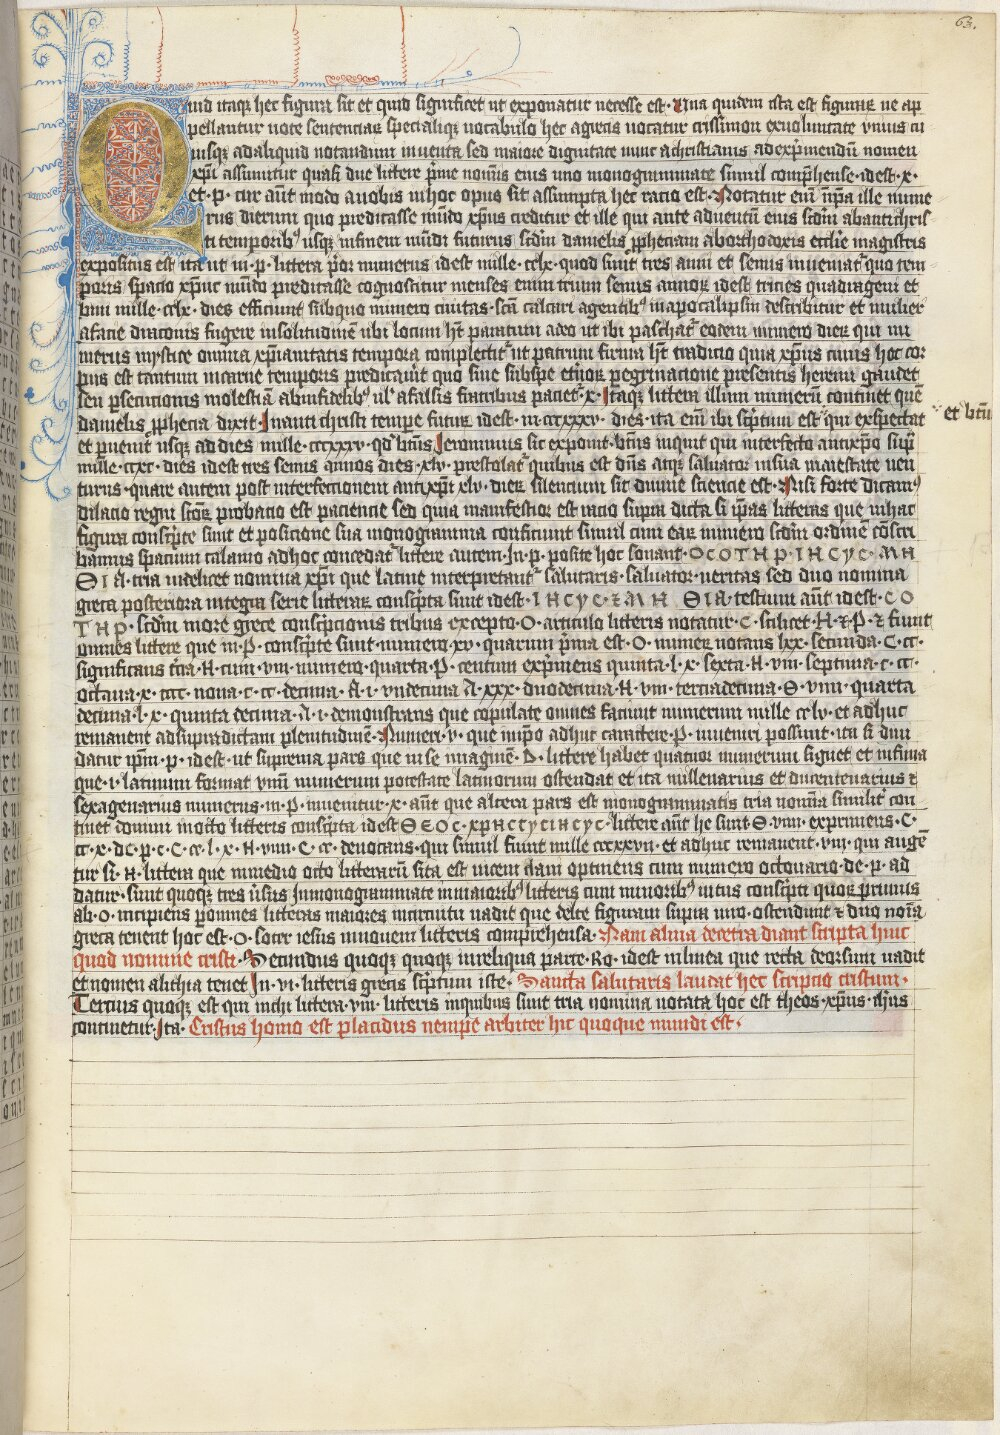 63.
Quid itaqz hec figura sit et quid significet ut exponatur necesse est· Una quidem ista est figurarum ne ap
pellantur note sententiarum specialiqz vocabulo hec agrecis vocatur crissimon exvoluntate vnius cu
iusqz adaliquid notandum inventa sed maiore dignitate nunc achristianis adexprimendū nomen
xp̄i assumitur quasi due littere p̄me nominis eius uno monogrammate simul comp̄hense·idest·x·
et·p·cur aūt modo anobis inhoc opus sit assumpta hec racio est·Notatur enī inip̄a ille nume
rus dierum quo predicasse mūdo xp̄us creditur et ille qui ante adventū eius scd̄m abantichris
ti temporibꝰ usqz infinem mūdi futurus scd̄m danielis p̄pheciam aborthodoxis ecclie magistris
expositus est ita ut in·p·littera p̄or numerus idest mille·cclx·quod sunt tres anni et semis inveniatr quo tem
poris spacio xp̄us mūdo predicasse cognoscitur menses enim trium semis annorum idest tricies quadrageni et
bini mille·cclx·dies efficiunt subquo numero civitas·scā calcari agentibꝰ inapocalipsin describitur et mulier
afacie draconis fugere insolitudinē ubi locum ht paratum adeo ut ibi paschatr eodem numero dierum qui nu
merus mystice omnia xp̄ianitatis tempora complectitr ut patrum firma ht tradicio quia xp̄us cuius hoc cor
pus est tantum incarne temporis predicavit quo sine subspe etnorum pegrinacione presentis
seu p̄secucionis molestia abinfidelibꝰ ul' afalsis fratribus pacietr·x·Itaqz littera illum numerū continet quē
danielis p̄phecia dixit·Inanti christi tempe futurum idest·m·cccxxxv·dies·ita enī ibi sc̄ptum est qui exspectat
et pvenit usqz ad dies mille·cccxxxv·qd' bn̄ns Ieronimus sic exponit·bn̄ns inquit qui interfecto antixp̄o sup̄
mille·ccxc·dies idest tres semis annos dies·xlv·prestolatr quibus est dn̄s atqz salvator insua maiestate ven
turus·quare autem post interfectionem antixp̄i xlv·dierum silencium sit divine sciencie est·Nisi forte dicamꝰ
dilacio regni sctorum probacio est paciencie sed quia manifestior est racio supra dicta si ip̄as litteras que inhac
figura consc̄pte sunt et posicione sua monogramma conficiunt simul cum earum numero scd̄m ordinē cōscri
bamus spacium calamo adhoc concedatr littere autem·In·p·posite hoc sonant·OCOTHP·IHCYC·AΛH
ΘIA·tria videlicet nomina xp̄i que latine interpretantr salutaris·salvator·veritas sed duo nomina
greca posteriora integra serie litterarum consc̄pta sunt idest·IHCYC·⁊·AΛH ΘIA·tercium aūt idest·CO
THP·scd̄m more grece conscp̄cionis tribus excepto·O·articulo litteris notatur·C·scilicet·H·⁊·P·⁊ fiunt
omnes littere que in·P·conscp̄te sunt·numero·xv·quarum p̄ma est·O·numerum notans lxx·secunda·C·cc·
significans tc̄ia·H·cum·viii·numero·quarta·P·centum exp̄mens quinta·I·x·sexta·H·viii·septima·c·cc·
octava·x·cccc·nona·c·cc·decima·A·i·undecima Λ·xxx·duodecima·H·viii·terciadecima·Θ·viiii·quarta
decima·I·x·quinta decima·A·i·demonstrans que copulate omnes faciunt numerum mille cclv·et adhuc
remanent adsupradictam plenitudinē·Numeri·v·que inip̄o adhuc caractere·P·inveniri possunt·ita si divi
datur ip̄m·p·idest·ut suprema pars que inse imaginē·D·littere habet quatuor numerum signet et infima
que·i·latinum format vnū numerum potestate latinorum ostendat et ita millenarius et ducentenarius ⁊
sexagenarius numerus·in·P·invenitur·x·aūt que altera pars est monogrammatis tria nomīa similitr con
tinet domini inocto litteris conscp̄ta idest ΘEOC·XPHCTYCIHCYC·littere aūt he sunt·Θ·viiii·exprimens·C·
cc·x·dc·p·c·C·cc·I·x·H·viii·C·cc·denotans·qui simul fiunt mille ccxxvii·et adhuc remanent·viii·qui augē
tur si·H·littera que inmedio octo litterarū sita est vicem dani optinens cum numero octonario·de·p·ad
datur·sunt quoqz tres v̄sus Inmonogrammate inmaioribꝰ litteris cum minoribꝰ intus consc̄pti quorum primus
ab·O·incipiens p̄omnes litteras maiores incircuitu vadit que delte figuram supra imo·ostendunt ⁊ duo nomīa
greca tenent hoc est·O·soter iesus innovem litteris comprehensa·Nam alma decreta dicant scripta huic
quod nomine cristi·Secundus quoqz quoqz inreliqua parte·Ro·idest inlinea que recta deorsum vadit
et nomen alithia tenet In·vi·litteris grecis sc̄ptum iste·Sancta salutaris laudat hec scripcio cristum·
Tercius quoqz est qui inchi littera·viii·litteris inquibus sunt tria nomina notata hoc est theos·xp̄us·ih̄us
continetur·Ita·Cristus homo est placidus nempe arbiter hic quoque mundi est·
et bn̄ni